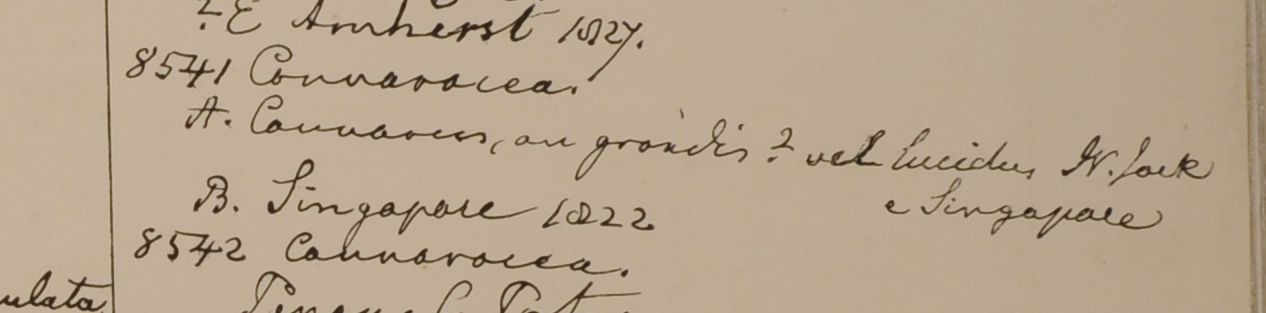 ? E Amherst 1827.
8541 Connaracea.
A. Connarus, an grandis? vel lucidus W. Jack
e Singapore
B. Singapore 1822
8542 Connaracea.
ulata